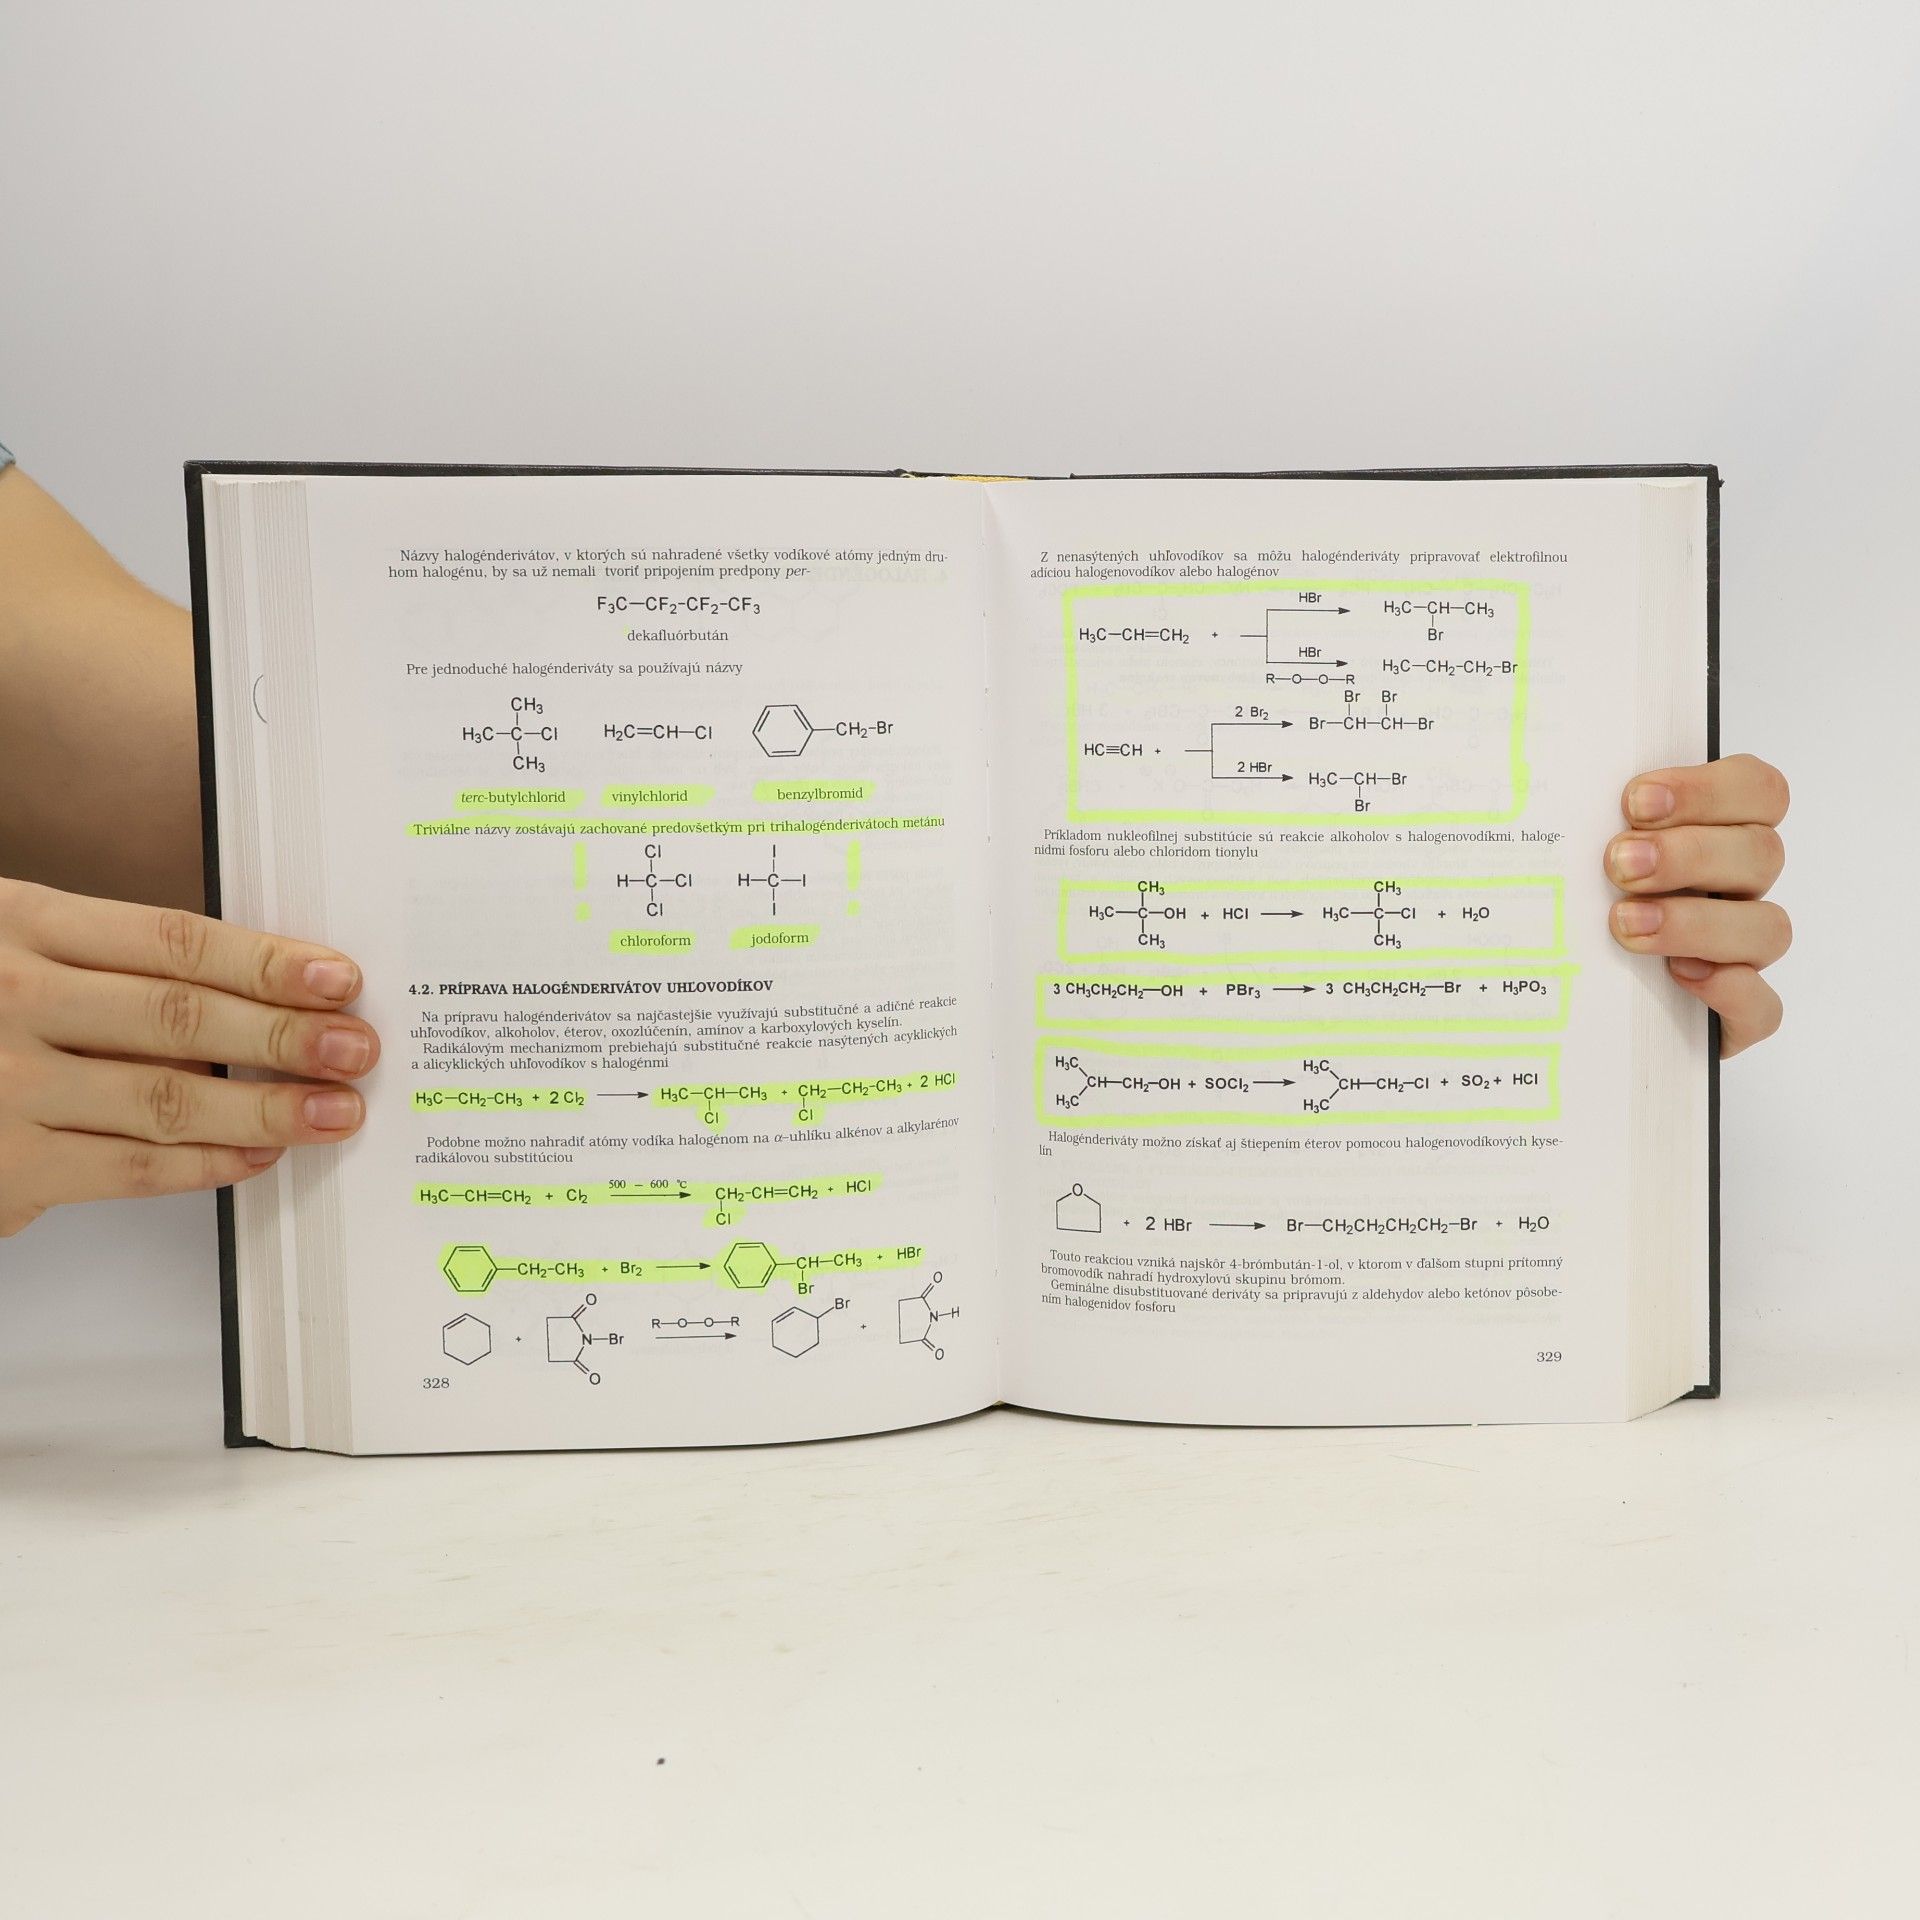 Názvy halogénderivátov, v ktorých sú nahradené všetky vodíkové atómy jedným dru-
hom halogénu, by sa už nemali tvoriť pripojením predpony per-
F₃C—CF₂-CF₂-CF₃
dekafluórbután
Pre jednoduché halogénderiváty sa používajú názvy
CH₃
H₃C—C—Cl H₂C=CH—Cl CH₂-Br
CH₃
terc-butylchlorid vinylchlorid benzylbromid
Triviálne názvy zostávajú zachované predovšetkým pri trihalogénderivátoch metánu
Cl I
H—C—Cl H—C—I
Cl I
chloroform jodoform
4.2. PRÍPRAVA HALOGÉNDERIVÁTOV UHĽOVODÍKOV
Na prípravu halogénderivátov sa najčastejšie využívajú substitučné a adičné reakcie
uhľovodíkov, alkoholov, éterov, oxozlúčenín, amínov a karboxylových kyselín.
Radikálovým mechanizmom prebiehajú substitučné reakcie nasýtených acyklických
a alicyklických uhľovodíkov s halogénmi
H₃C—CH₂-CH₃ + 2 Cl₂ ⟶ H₃C—CH—CH₃ + CH₂—CH₂-CH₃ + 2 HCl
Cl Cl
Podobne možno nahradiť atómy vodíka halogénom na α-uhlíku alkénov a alkylarénov
radikálovou substitúciou
500 – 600 °C
H₃C—CH=CH₂ + Cl₂ ⟶ CH₂-CH=CH₂ + HCl
Cl
CH₂-CH₃ + Br₂ ⟶ CH—CH₃ + HBr
Br
O Br O
R—O—O—R
+ N—Br ⟶ + N—H
O O
328
Z nenasýtených uhľovodíkov sa môžu halogénderiváty pripravovať elektrofilnou
adíciou halogenovodíkov alebo halogénov
HBr
H₃C—CH—CH₃
H₃C—CH=CH₂ + Br
HBr
H₃C—CH₂-CH₂-Br
R—O—O—R
Br Br
2 Br₂
Br—CH—CH—Br
HC≡CH +
2 HBr
H₃C—CH—Br
Br
Príkladom nukleofilnej substitúcie sú reakcie alkoholov s halogenovodíkmi, haloge-
nidmi fosforu alebo chloridom tionylu
CH₃ CH₃
H₃C—C—OH + HCl ⟶ H₃C—C—Cl + H₂O
CH₃ CH₃
3 CH₃CH₂CH₂—OH + PBr₃ ⟶ 3 CH₃CH₂CH₂—Br + H₃PO₃
H₃C H₃C
CH—CH₂-OH + SOCl₂ ⟶ CH—CH₂-Cl + SO₂ + HCl
H₃C H₃C
Halogénderiváty možno získať aj štiepením éterov pomocou halogenovodíkových kyse-
lín
O
+ 2 HBr ⟶ Br—CH₂CH₂CH₂CH₂-Br + H₂O
Touto reakciou vzniká najskôr 4-brómbután-1-ol, v ktorom v ďalšom stupni prítomný
bromovodík nahradí hydroxylovú skupinu brómom.
Geminálne disubstituované deriváty sa pripravujú z aldehydov alebo ketónov pôsobe-
ním halogenidov fosforu
329